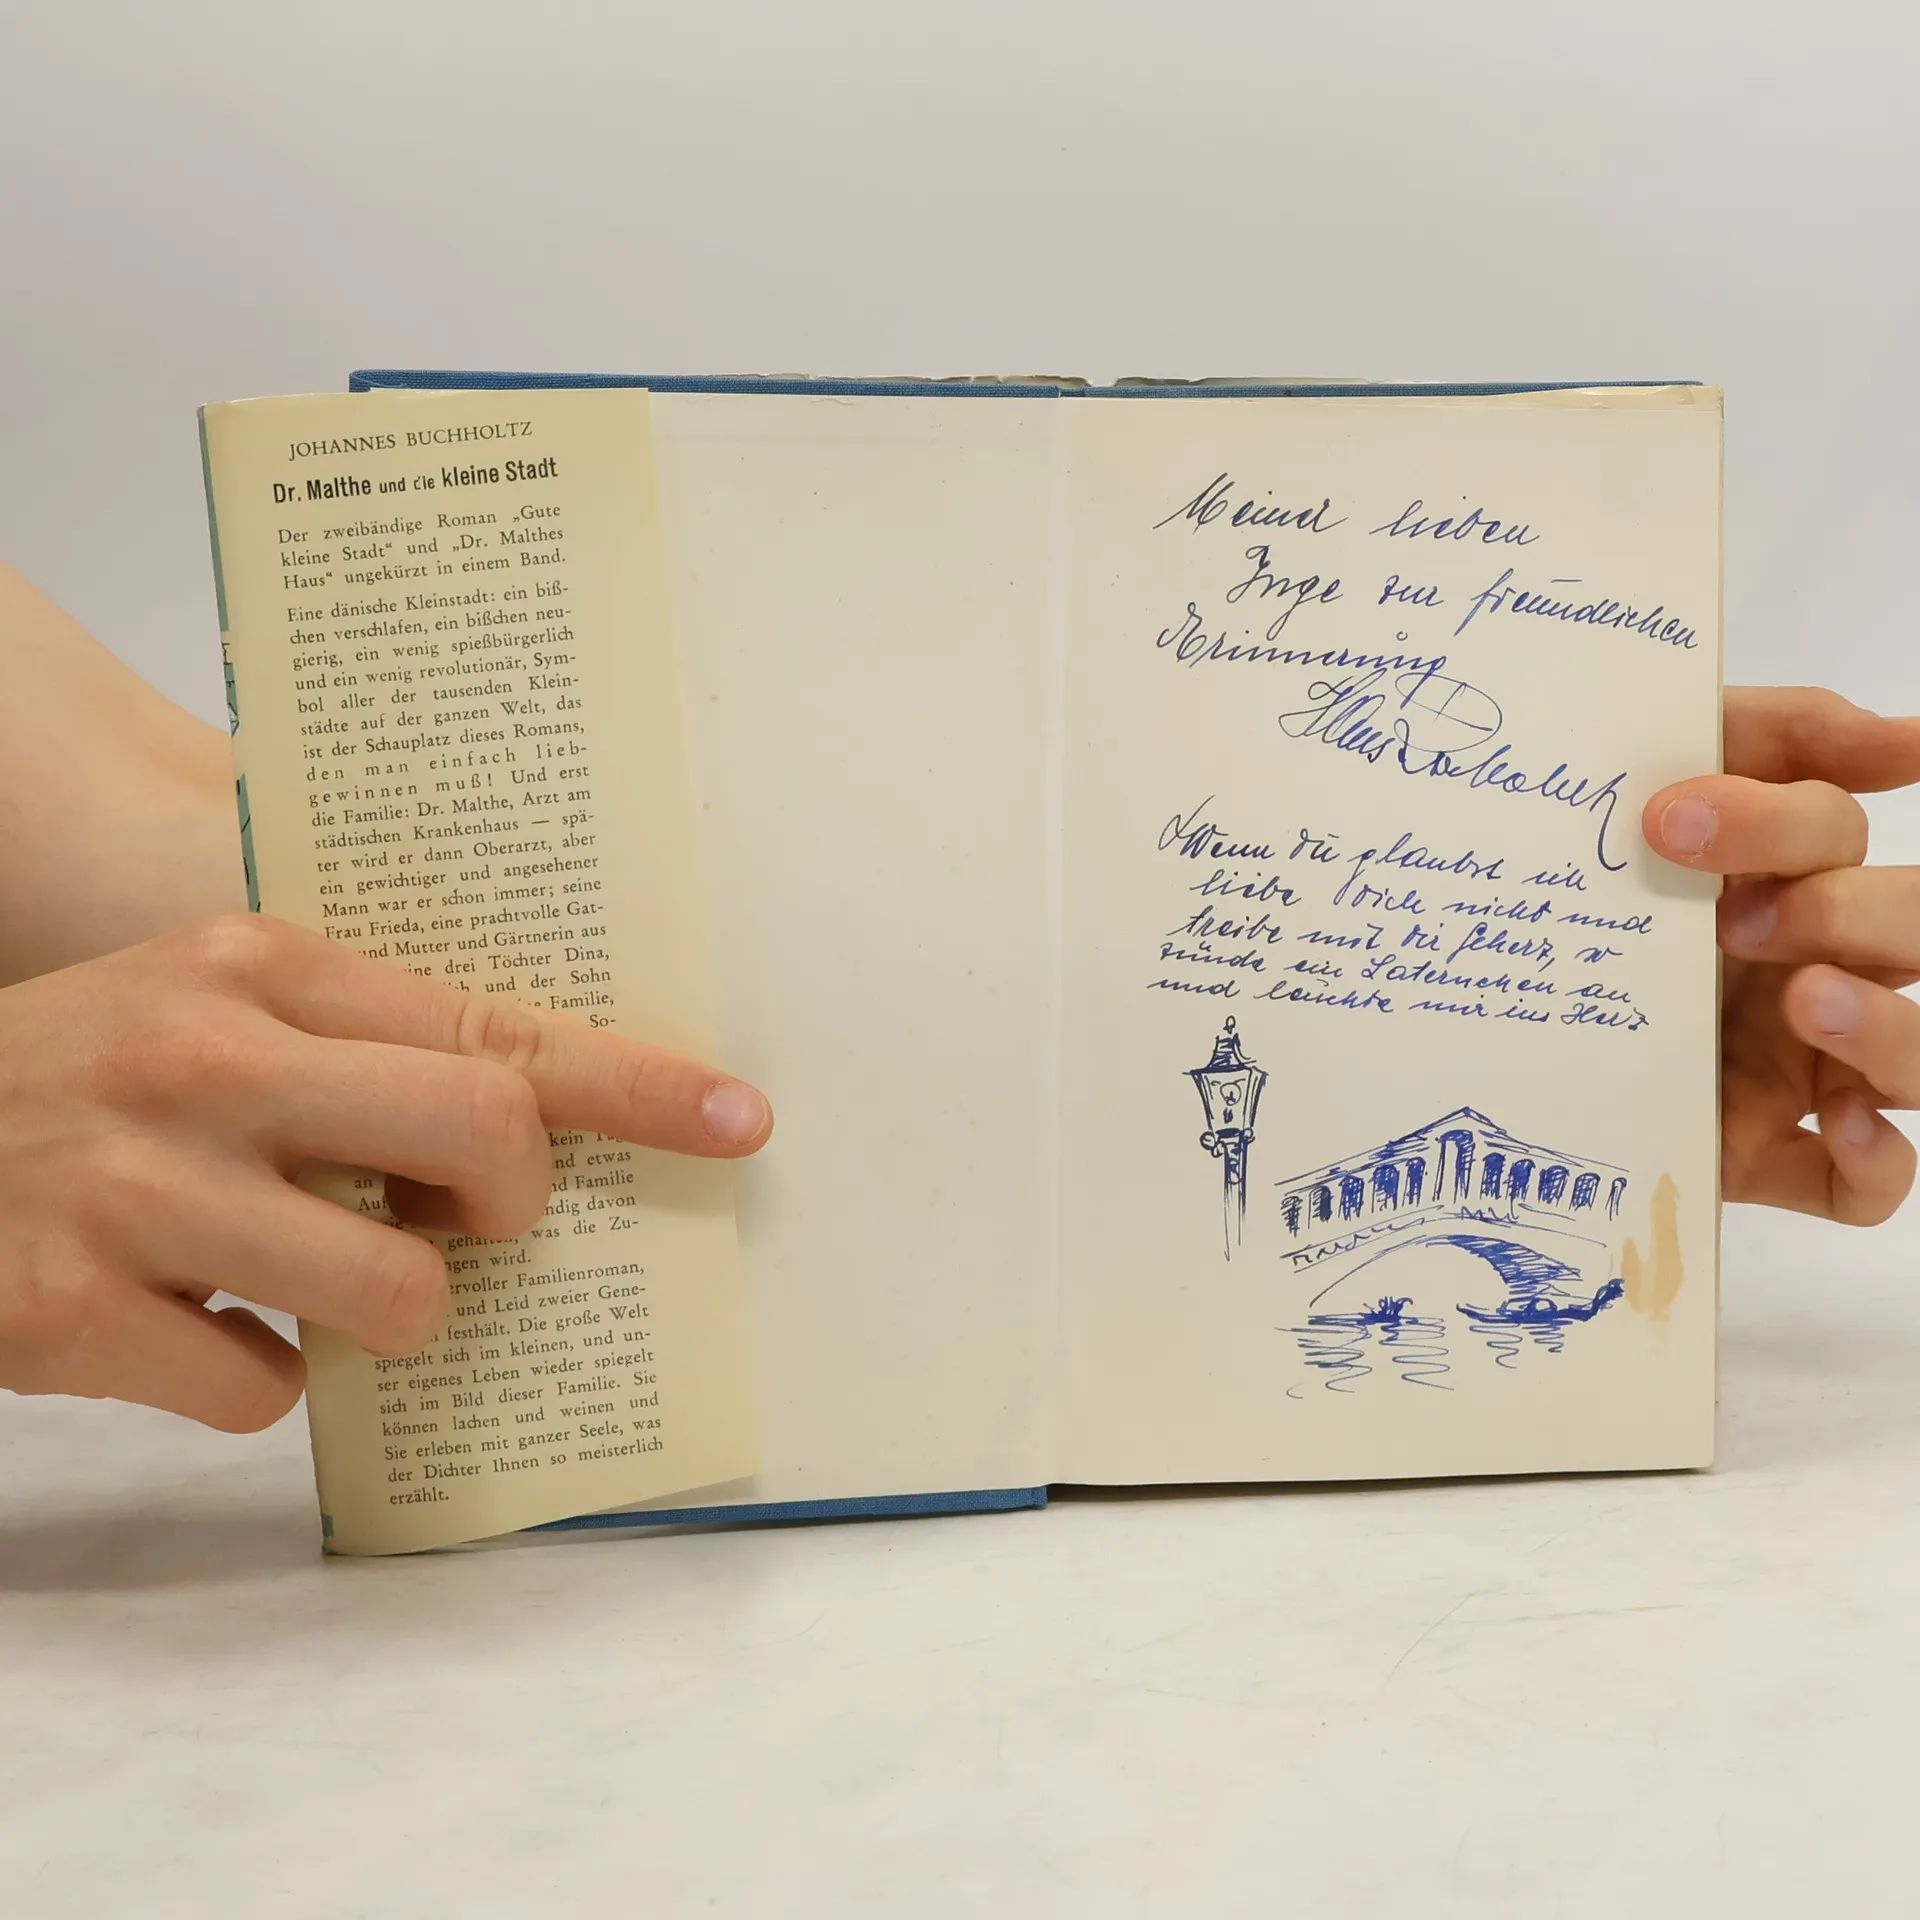 JOHANNES BUCHHOLTZ
Dr. Malthe und die kleine Stadt
Der zweibändige Roman „Gute
kleine Stadt“ und „Dr. Malthes
Haus“ ungekürzt in einem Band.
Eine dänische Kleinstadt: ein biß-
chen verschlafen, ein bißchen neu-
gierig, ein wenig spießbürgerlich
und ein wenig revolutionär, Sym-
bol aller der tausenden Klein-
städte auf der ganzen Welt, das
ist der Schauplatz dieses Romans,
den man einfach lieb-
gewinnen muß! Und erst
die Familie: Dr. Malthe, Arzt am
städtischen Krankenhaus — spä-
ter wird er dann Oberarzt, aber
ein gewichtiger und angesehener
Mann war er schon immer; seine
Frau Frieda, eine prachtvolle Gat-
und Mutter und Gärtnerin aus
drei Töchter Dina,
und der Sohn
Familie,
So-
kein
etwas
an Familie
davon
was die Zu-
wird.
Familienroman,
und Leid zweier Gene-
festhält. Die große Welt
spiegelt sich im kleinen, und un-
ser eigenes Leben wieder spiegelt
sich im Bild dieser Familie. Sie
können lachen und weinen und
Sie erleben mit ganzer Seele, was
der Dichter Ihnen so meisterlich
erzählt.
Meiner lieben
Inge zur freundlichen
Erinnerung
Hans
Wenn du glaubst ich
liebe Dich nicht und
treibe mit dir Scherz, so
zünde ein Laternchen an
und leuchte mir ins Herz